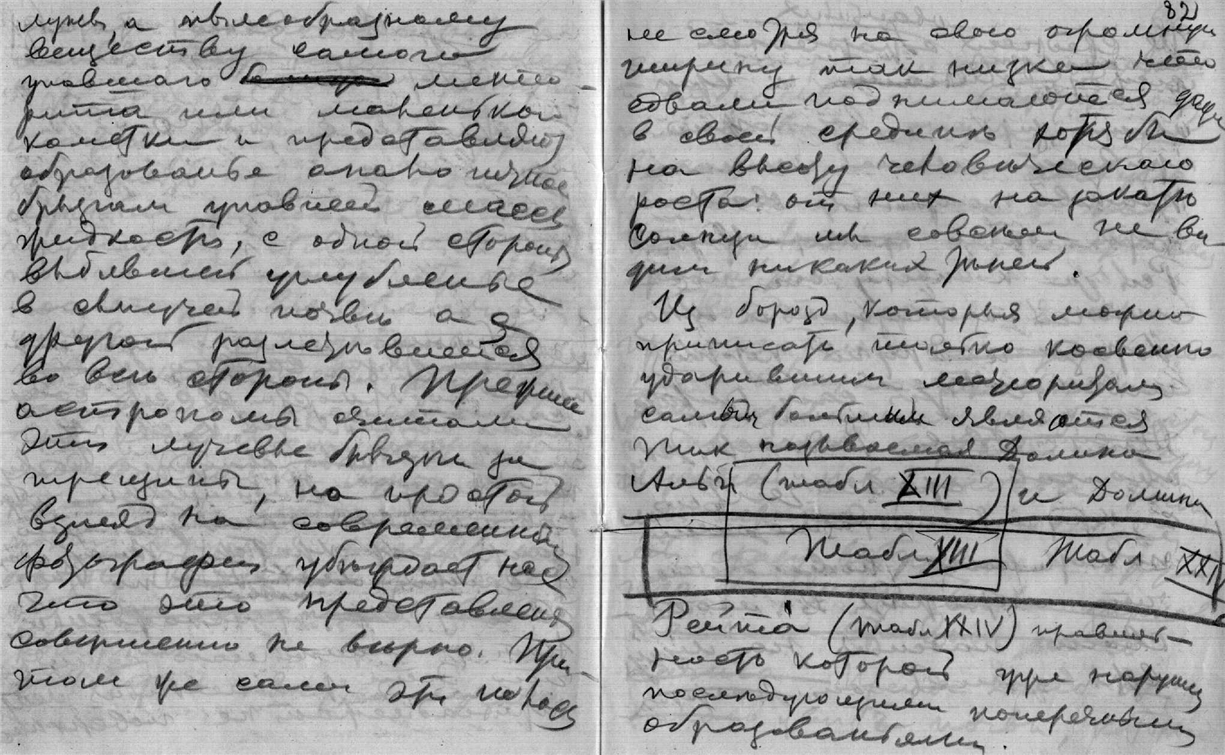 лучей, а пылеобразному
веществу самого
упавшаго метео
рита или маленькой
кометки и представляют
образованье аналогичное
брызгам упавшей массы
жидкости, с одной стороны
выбившей углубленье
в сыпучей почвы а с
другой разлетевшейся
во все стороны. Прежние
астрономы считали
эти лучевые брызги за
трещины, но простой
взгляд на современной
фотографии убеждает нас
что это представленье
совершенно не верно. При
том же сами эти полосы
82
не смотря на свою огромную
ширину так низки что
едвали поднимаются даже
в своей средине хотя бы
на высоту человеческаго
роста: от них на закате
солнца мы совсем не ви
дим никаких теней.
Из борозд, которыя можно
приписать только косвенно
ударившим метеоритам
самыми большими являются
так называемая Долина
Альп (табл XIII) и Долина
Табл XIII Табл XXI
Рейта (табл XXIV) правиль-
ность которой уже нарушена
последующими поперечными
образованьями.